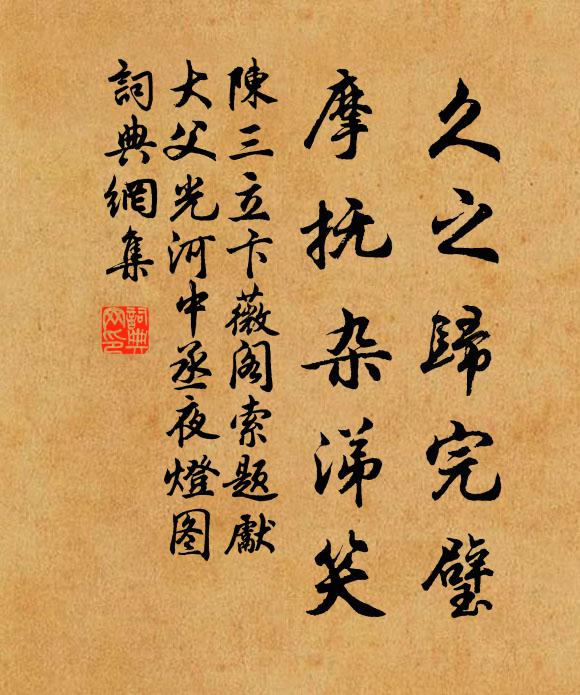 久之歸完璧
摩抚杂涕笑
陳三立卞薇阁索题獻
大父光河中丞夜燈图
詞典網集
詞典網印